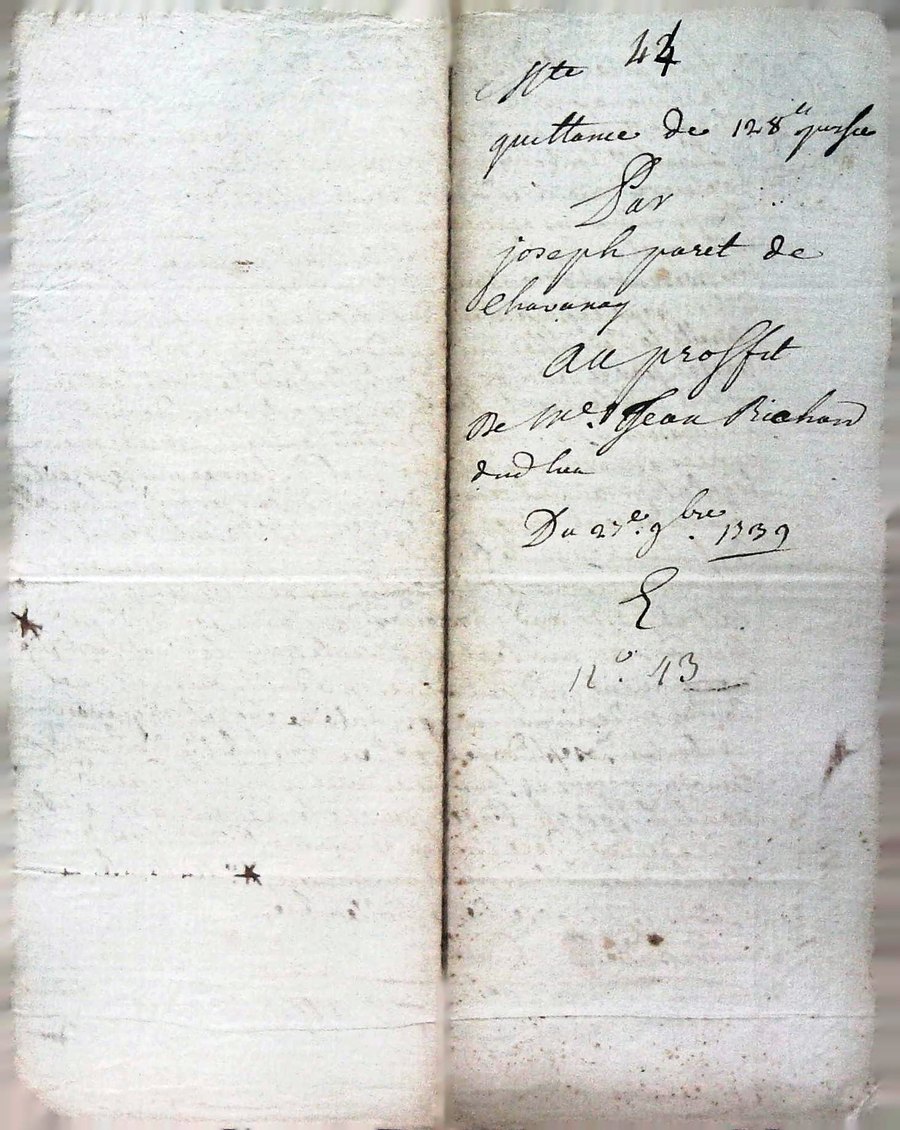 44
quittance de 128ᵗᵗ
Par
joseph paret de
Chavanay
au proffit
De Mᵉ. Jean Richard
dud lieu
Du 27ᵉ. 9ᵇʳᵉ. 1739
nᵒ. 43